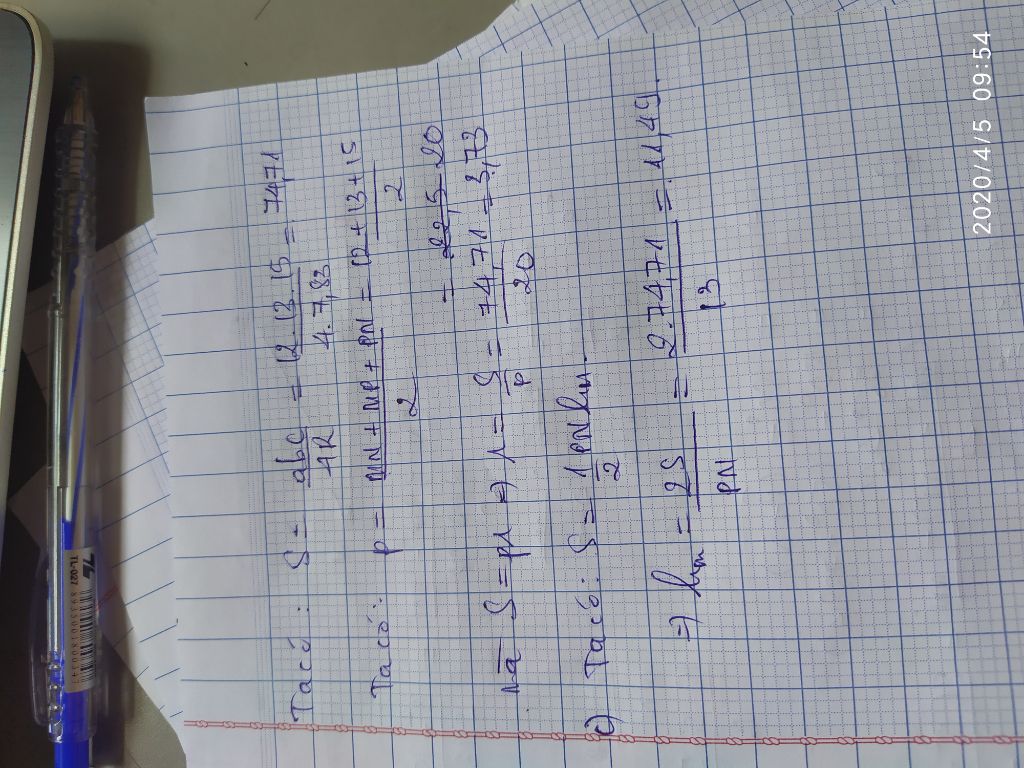 Ta có: S = abc/4R = 12.13.15/4.7,83 = 74,71
Ta có: p = MN + NP + PN/2 = 12+13+15/2
= 22,5 20
Mà S = pr ⇒ r = S/p = 74,71/20 = 3,73
c) Ta có: S = 1/2 PN hm.
⇒ hm = 2S/PN = 2.74,71/13 = 11,49.
2020/4/5 09:54
TL-027